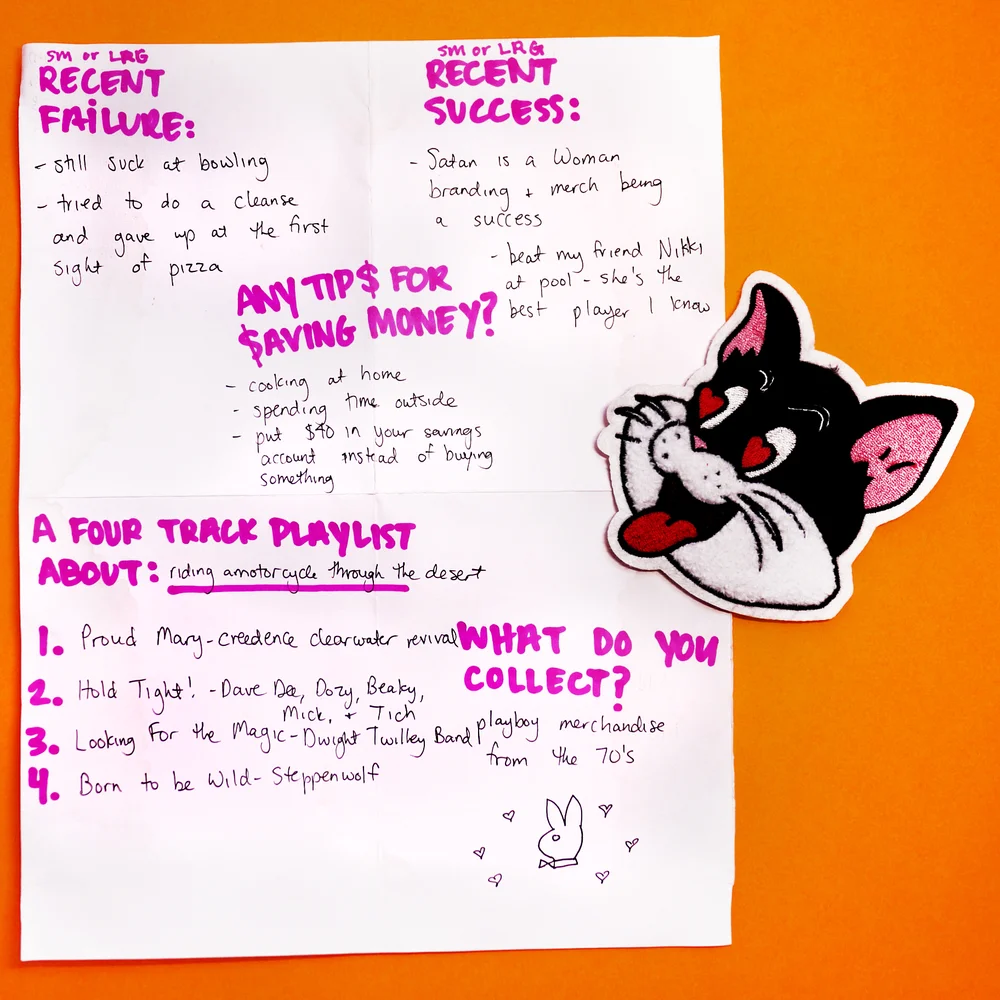 SM or LRG
RECENT
FAILURE:
- still suck at bowling
- tried to do a cleanse
and gave up at the first
sight of pizza
SM or LRG
RECENT
SUCCESS:
- Satan is a Woman
branding + merch being
a success
- beat my friend Nikki
at pool - she's the
best player I know
ANY TIP$ FOR
$AVING MONEY?
- cooking at home
- spending time outside
- put $40 in your savings
account instead of buying
something
A FOUR TRACK PLAYLIST
ABOUT: riding a motorcycle through the desert
1. Proud Mary - creedence clearwater revival
2. Hold Tight! - Dave Dee, Dozy, Beaky,
Mick, + Tich
3. Looking For the Magic - Dwight Twilley Band
4. Born to be Wild - Steppenwolf
WHAT DO YOU
COLLECT?
playboy merchandise
from the 70's